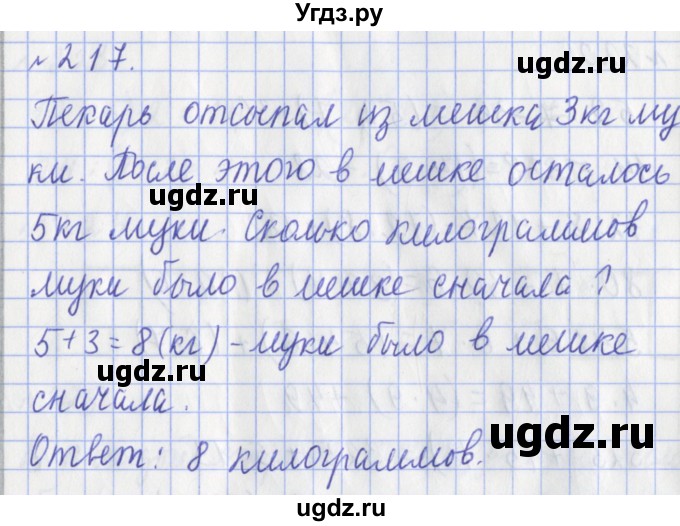 Угдз.ру
№217.
ugdz.ru
Пекарь отсыпал из мешка 3кг му
ки. После этого в мешке осталось
ugdz.ru
5кг муки. Сколько килограммов
муки было в мешке сначала?
5+3=8(кг)-муки было в мешке
ugdz.ru
сначала.
ugdz.ru
Ответ: 8 килограммов.
ugdz.ru